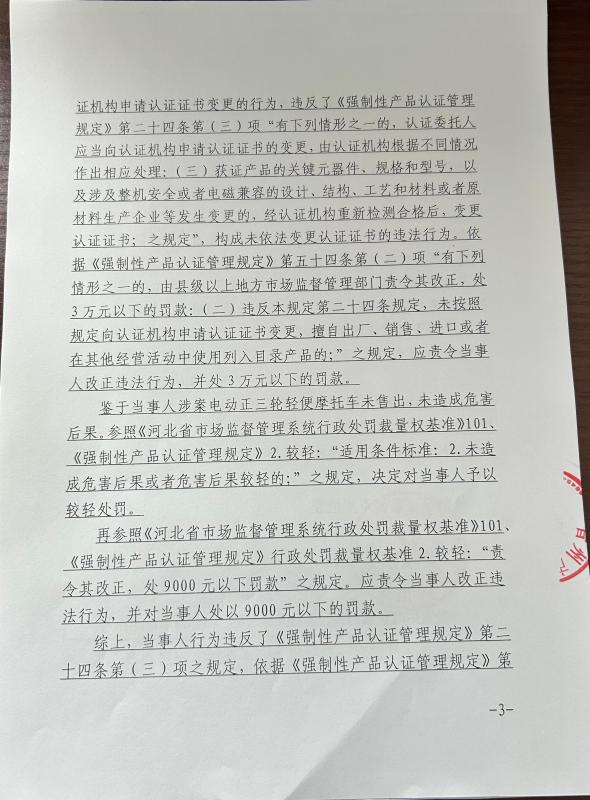 证机构申请认证证书变更的行为，违反了《强制性产品认证管理
规定》第二十四条第（三）项“有下列情形之一的，认证委托人
应当向认证机构申请认证证书的变更，由认证机构根据不同情况
作出相应处理：（三）获证产品的关键元器件、规格和型号，以
及涉及整机安全或者电磁兼容的设计、结构、工艺和材料或者原
材料生产企业等发生变更的，经认证机构重新检测合格后，变更
认证证书；之规定”，构成未依法变更认证证书的违法行为。依
据《强制性产品认证管理规定》第五十四条第（二）项“有下列
情形之一的，由县级以上地方市场监督管理部门责令其改正，处
3万元以下的罚款：（二）违反本规定第二十四条规定，未按照
规定向认证机构申请认证证书变更，擅自出厂、销售、进口或者
在其他经营活动中使用列入目录产品的；”之规定，应责令当事
人改正违法行为，并处3万元以下的罚款。
鉴于当事人涉案电动正三轮轻便摩托车未售出，未造成危害
后果。参照《河北省市场监督管理系统行政处罚裁量权基准》101、
《强制性产品认证管理规定》2.较轻：“适用条件标准：2.未造
成危害后果或者危害后果较轻的；”之规定，决定对当事人予以
较轻处罚。
再参照《河北省市场监督管理系统行政处罚裁量权基准》101、
《强制性产品认证管理规定》行政处罚裁量权基准2.较轻：“责
令其改正，处9000元以下罚款”之规定。应责令当事人改正违
法行为，并对当事人处以9000元以下的罚款。
综上，当事人行为违反了《强制性产品认证管理规定》第二
十四条第（三）项之规定，依据《强制性产品认证管理规定》第
-3-